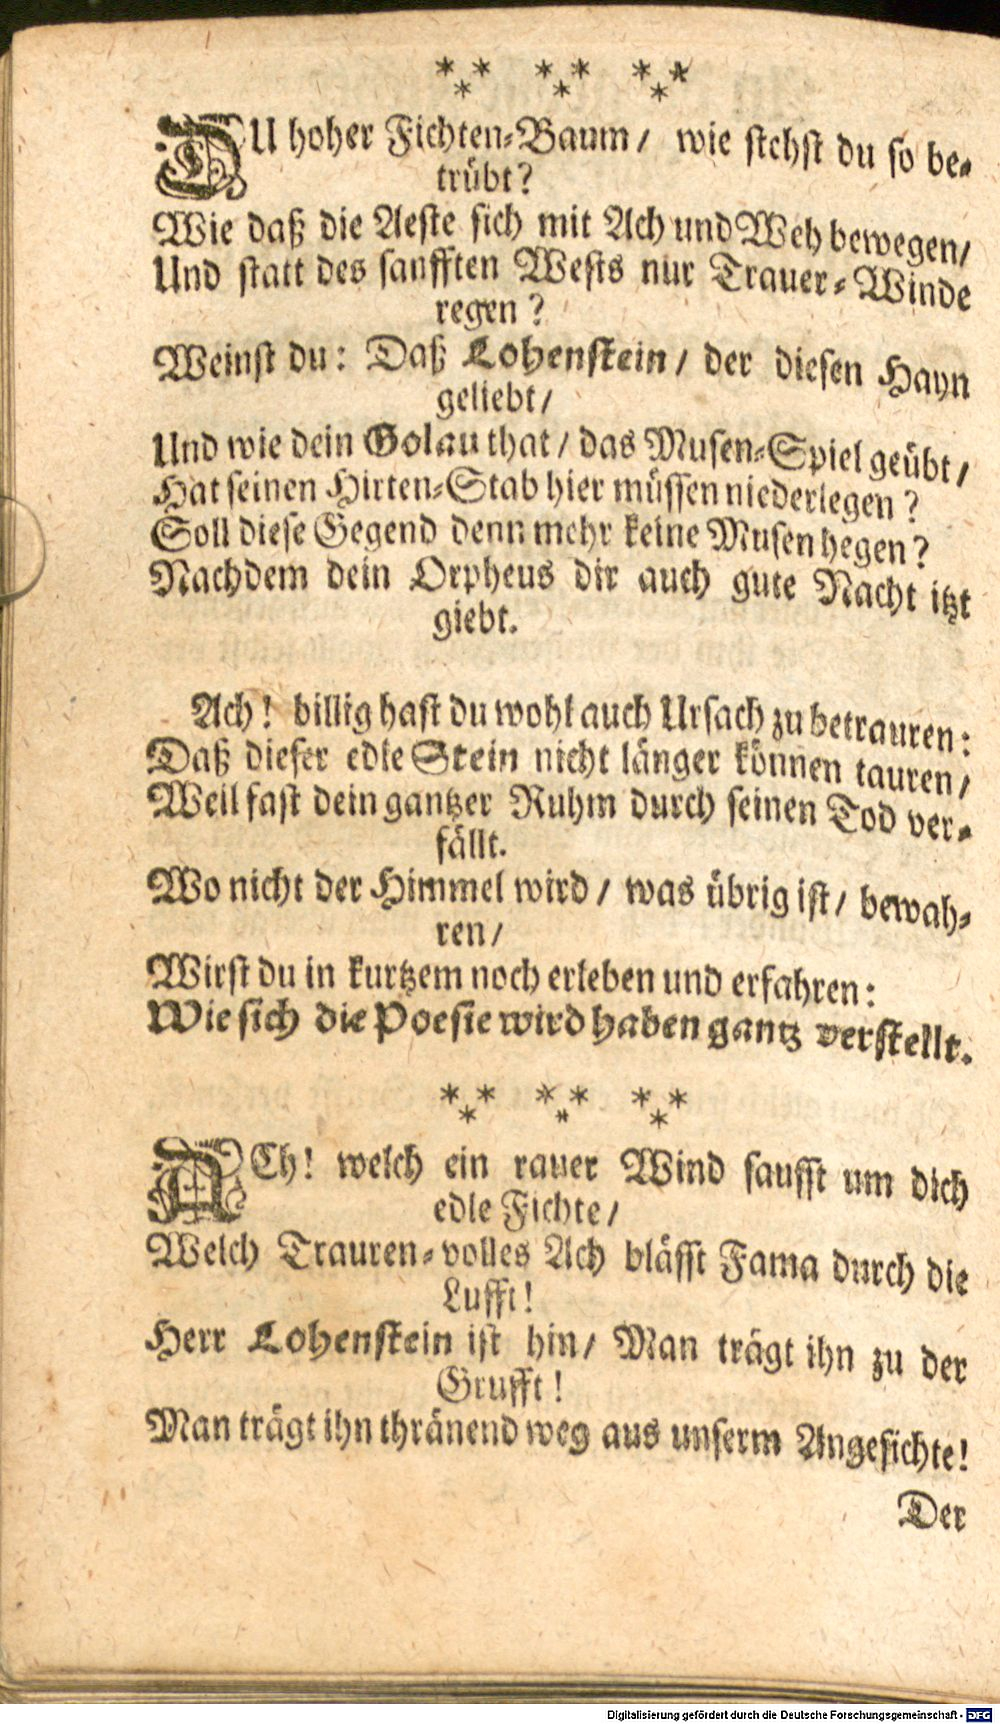 * * * * * *
* * *
DU hoher Fichten-Baum / wie stehst du so be-
trübt?
Wie daß die Aeste sich mit Ach und Weh bewegen /
Und statt des sanfften Wests nur Trauer-Winde
regen?
Weinst du: Daß Lohenstein / der diesen Hayn
geliebt /
Und wie dein Golau that / das Musen-Spiel geübt /
Hat seinen Hirten-Stab hier müssen niederlegen?
Soll diese Gegend denn mehr keine Musen hegen?
Nachdem dein Orpheus dir auch gute Nacht itzt
giebt.
Ach! billig hast du wohl auch Ursach zu betrauren:
Daß dieser edle Stein nicht länger können tauren /
Weil fast dein gantzer Ruhm durch seinen Tod ver-
fällt.
Wo nicht der Himmel wird / was übrig ist / bewah-
ren /
Wirst du in kurtzem noch erleben und erfahren:
Wie sich die Poesie wird haben gantz verstellt.
* * * * * *
* * *
ACh! welch ein rauer Wind saufft um dich
edle Fichte /
Welch Trauren-volles Ach blässt Fama durch die
Lufft!
Herr Lohenstein ist hin / Man trägt ihn zu der
Grufft!
Man trägt ihn thränend weg aus unserm Angesichte!
Der
Digitalisierung gefördert durch die Deutsche Forschungsgemeinschaft - DFG